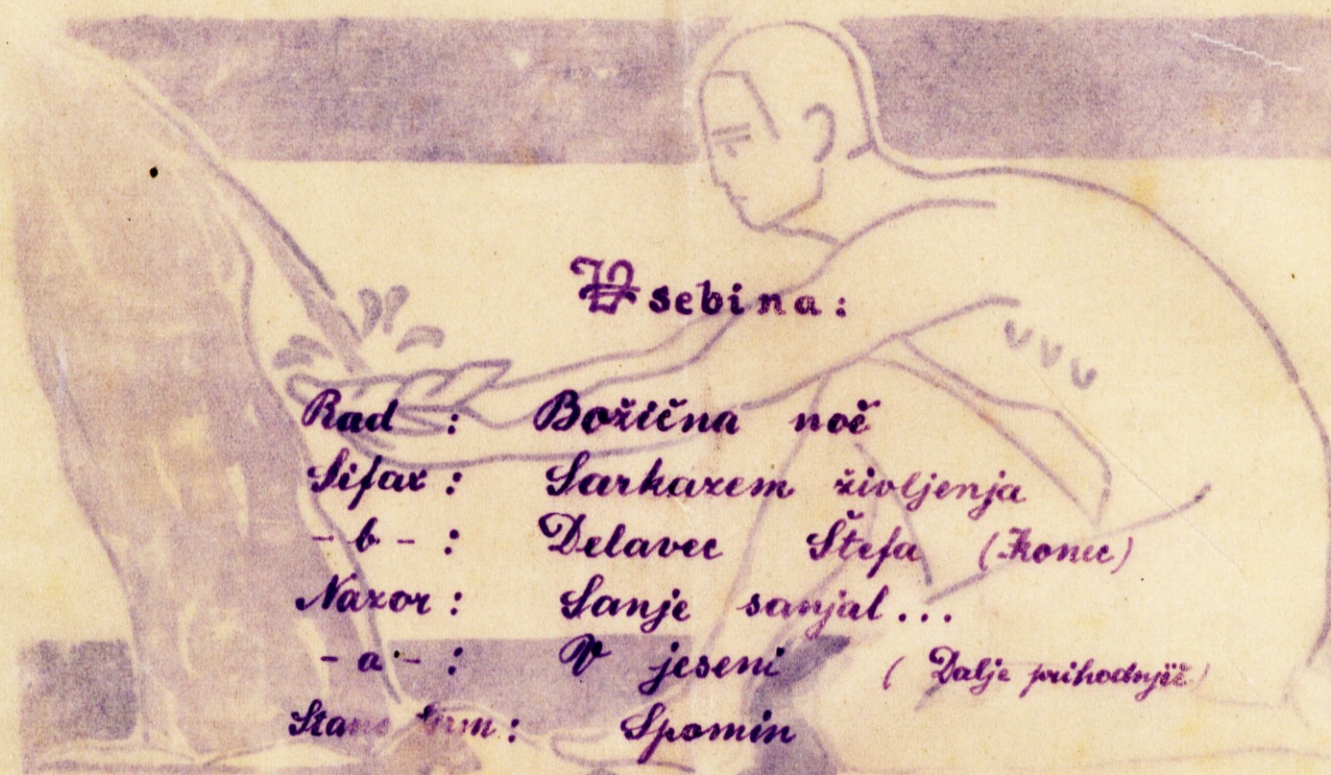 Vsebina:
Rad : Božična noč
Sifax : Sarkazem življenja
- b - : Delavec Štefa (Konec)
Nazor : Sanje sanjal...
- a - : V jeseni ( Dalje prihodnjič)
: Spomin